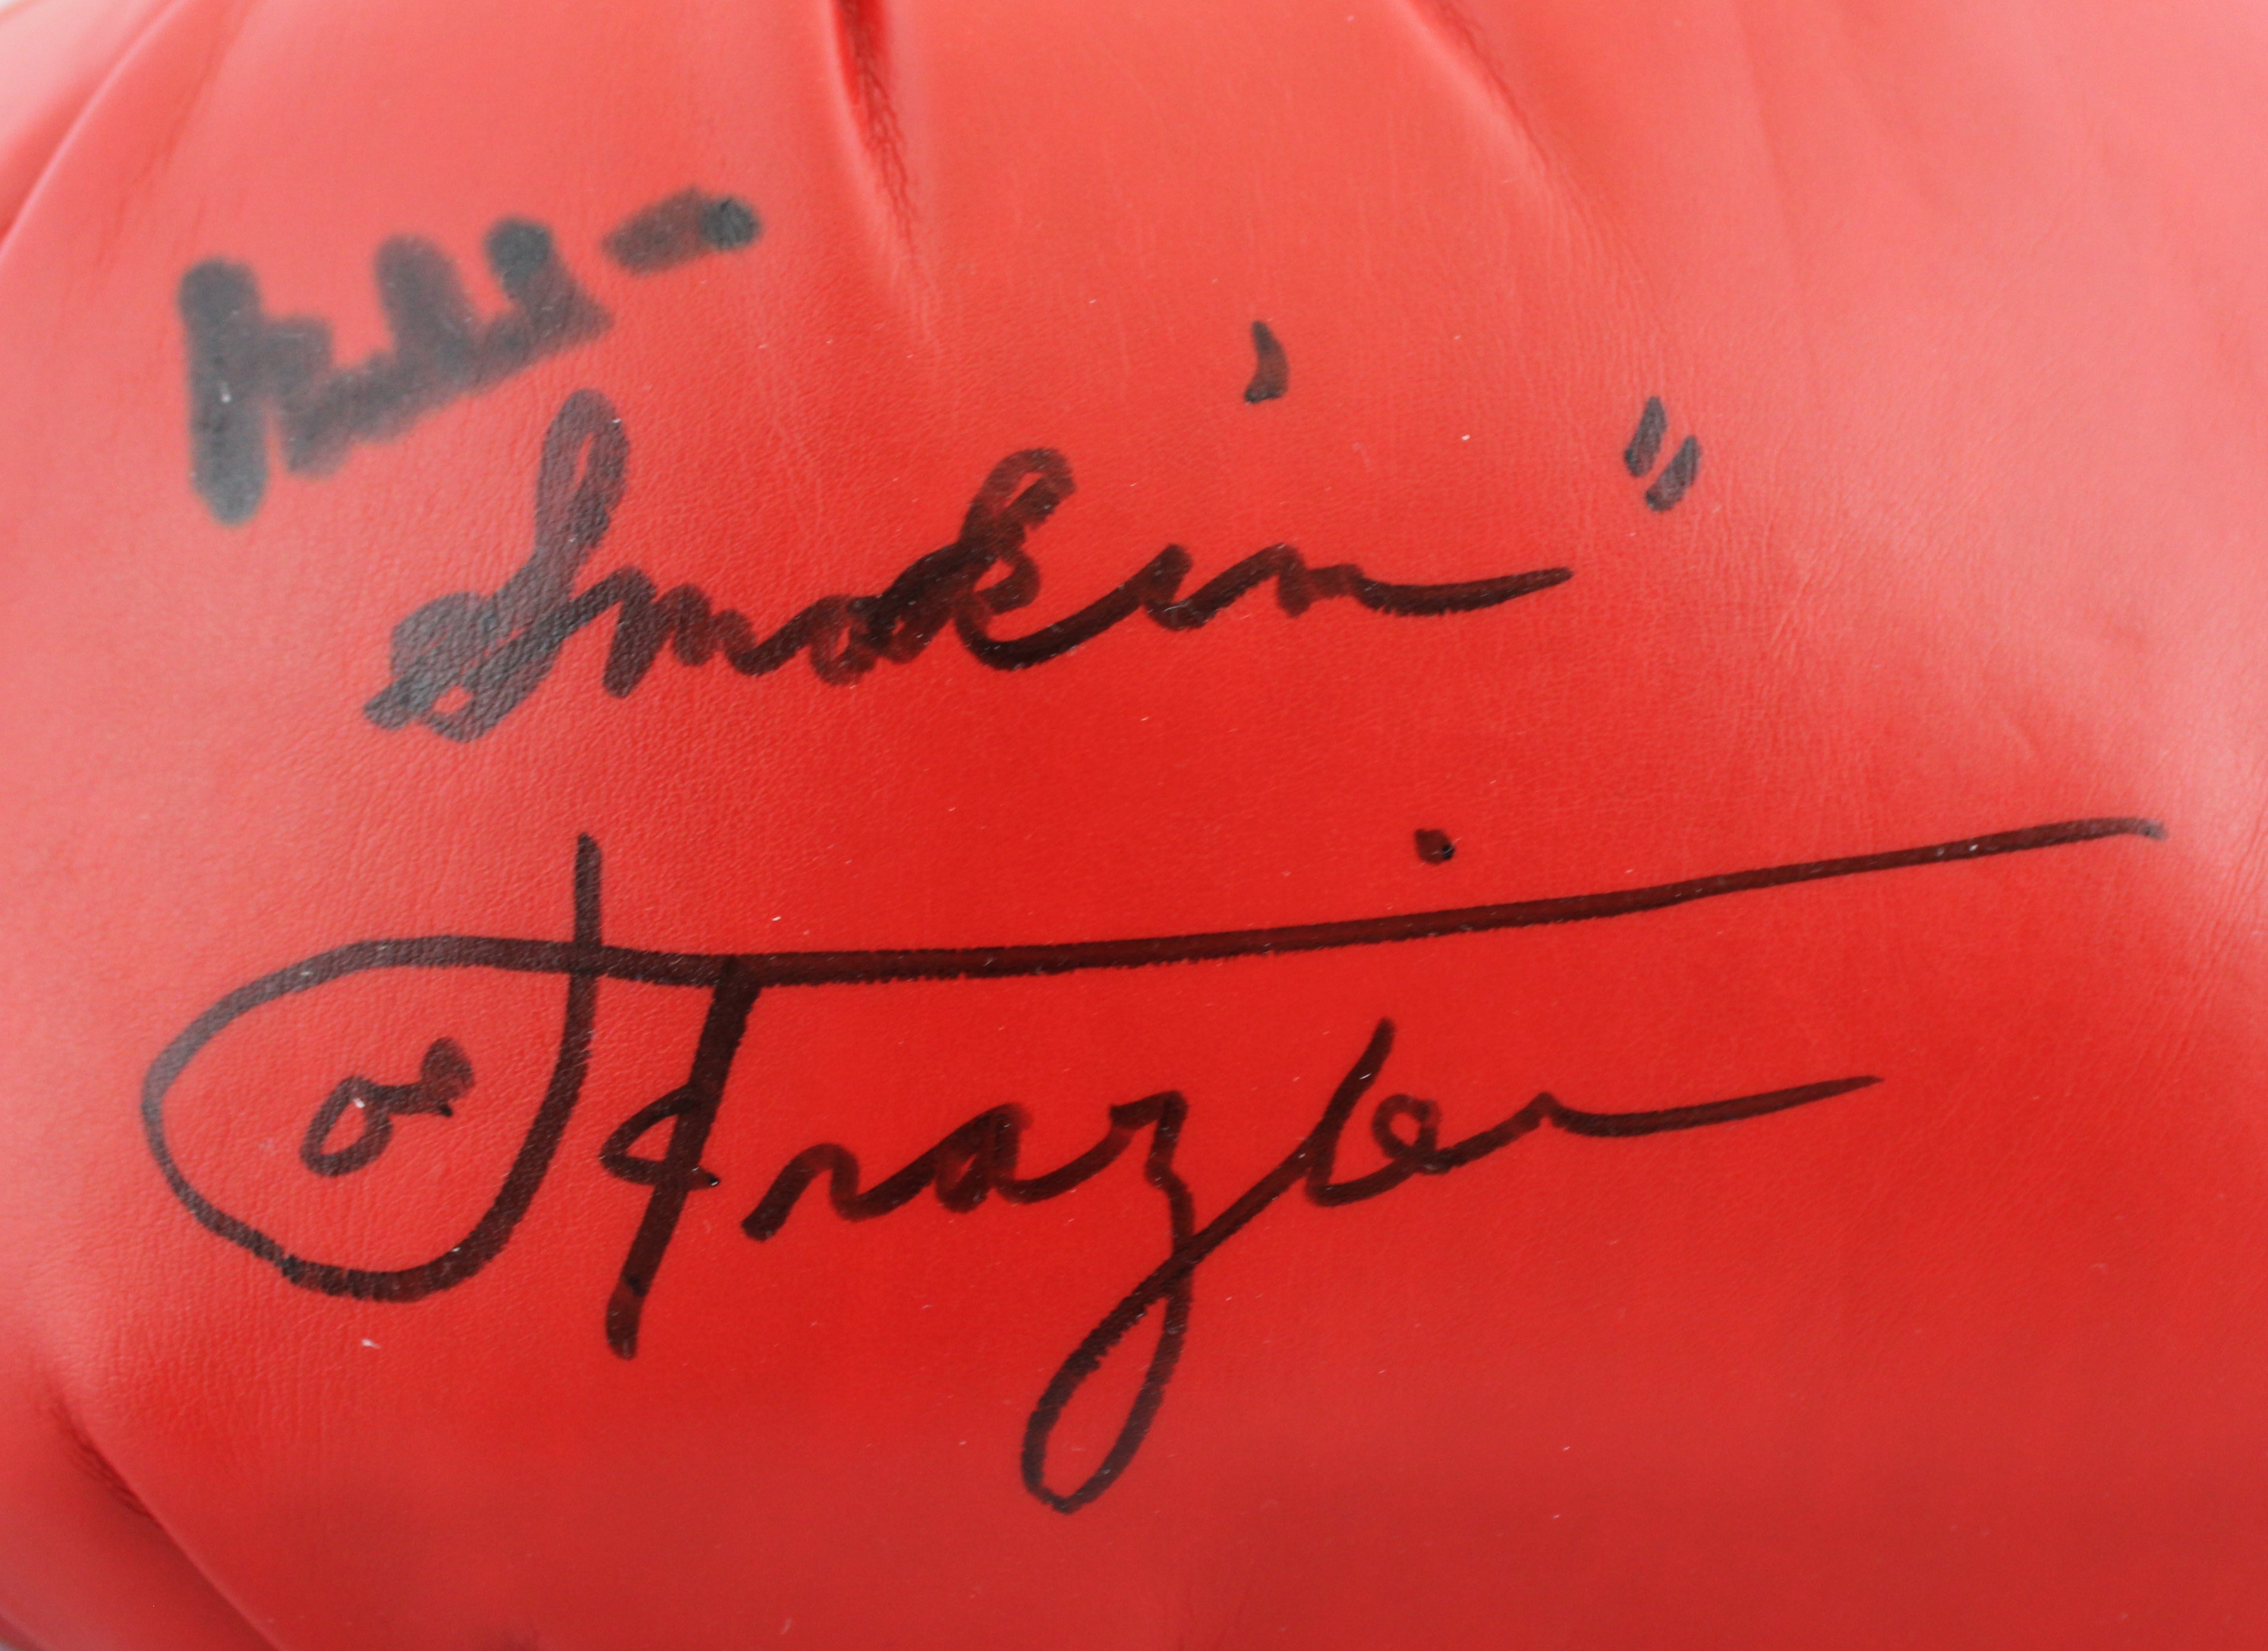 Smokin'"
Joe Frazier